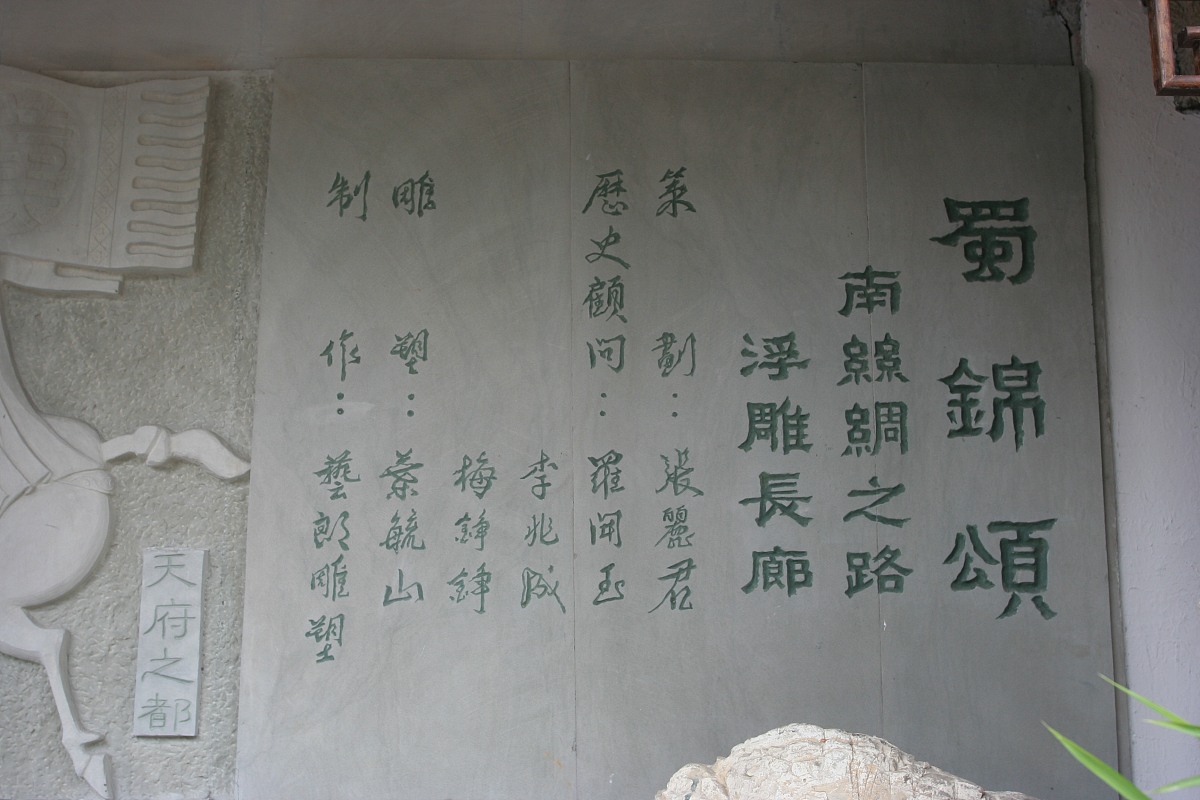 蜀錦頌
南絲綢之路
浮雕長廊
策劃：張麗君
歷史顧問：羅開玉
李兆成
梅錚錚
雕塑：葉毓山
制作：藝郎雕塑
天府之都